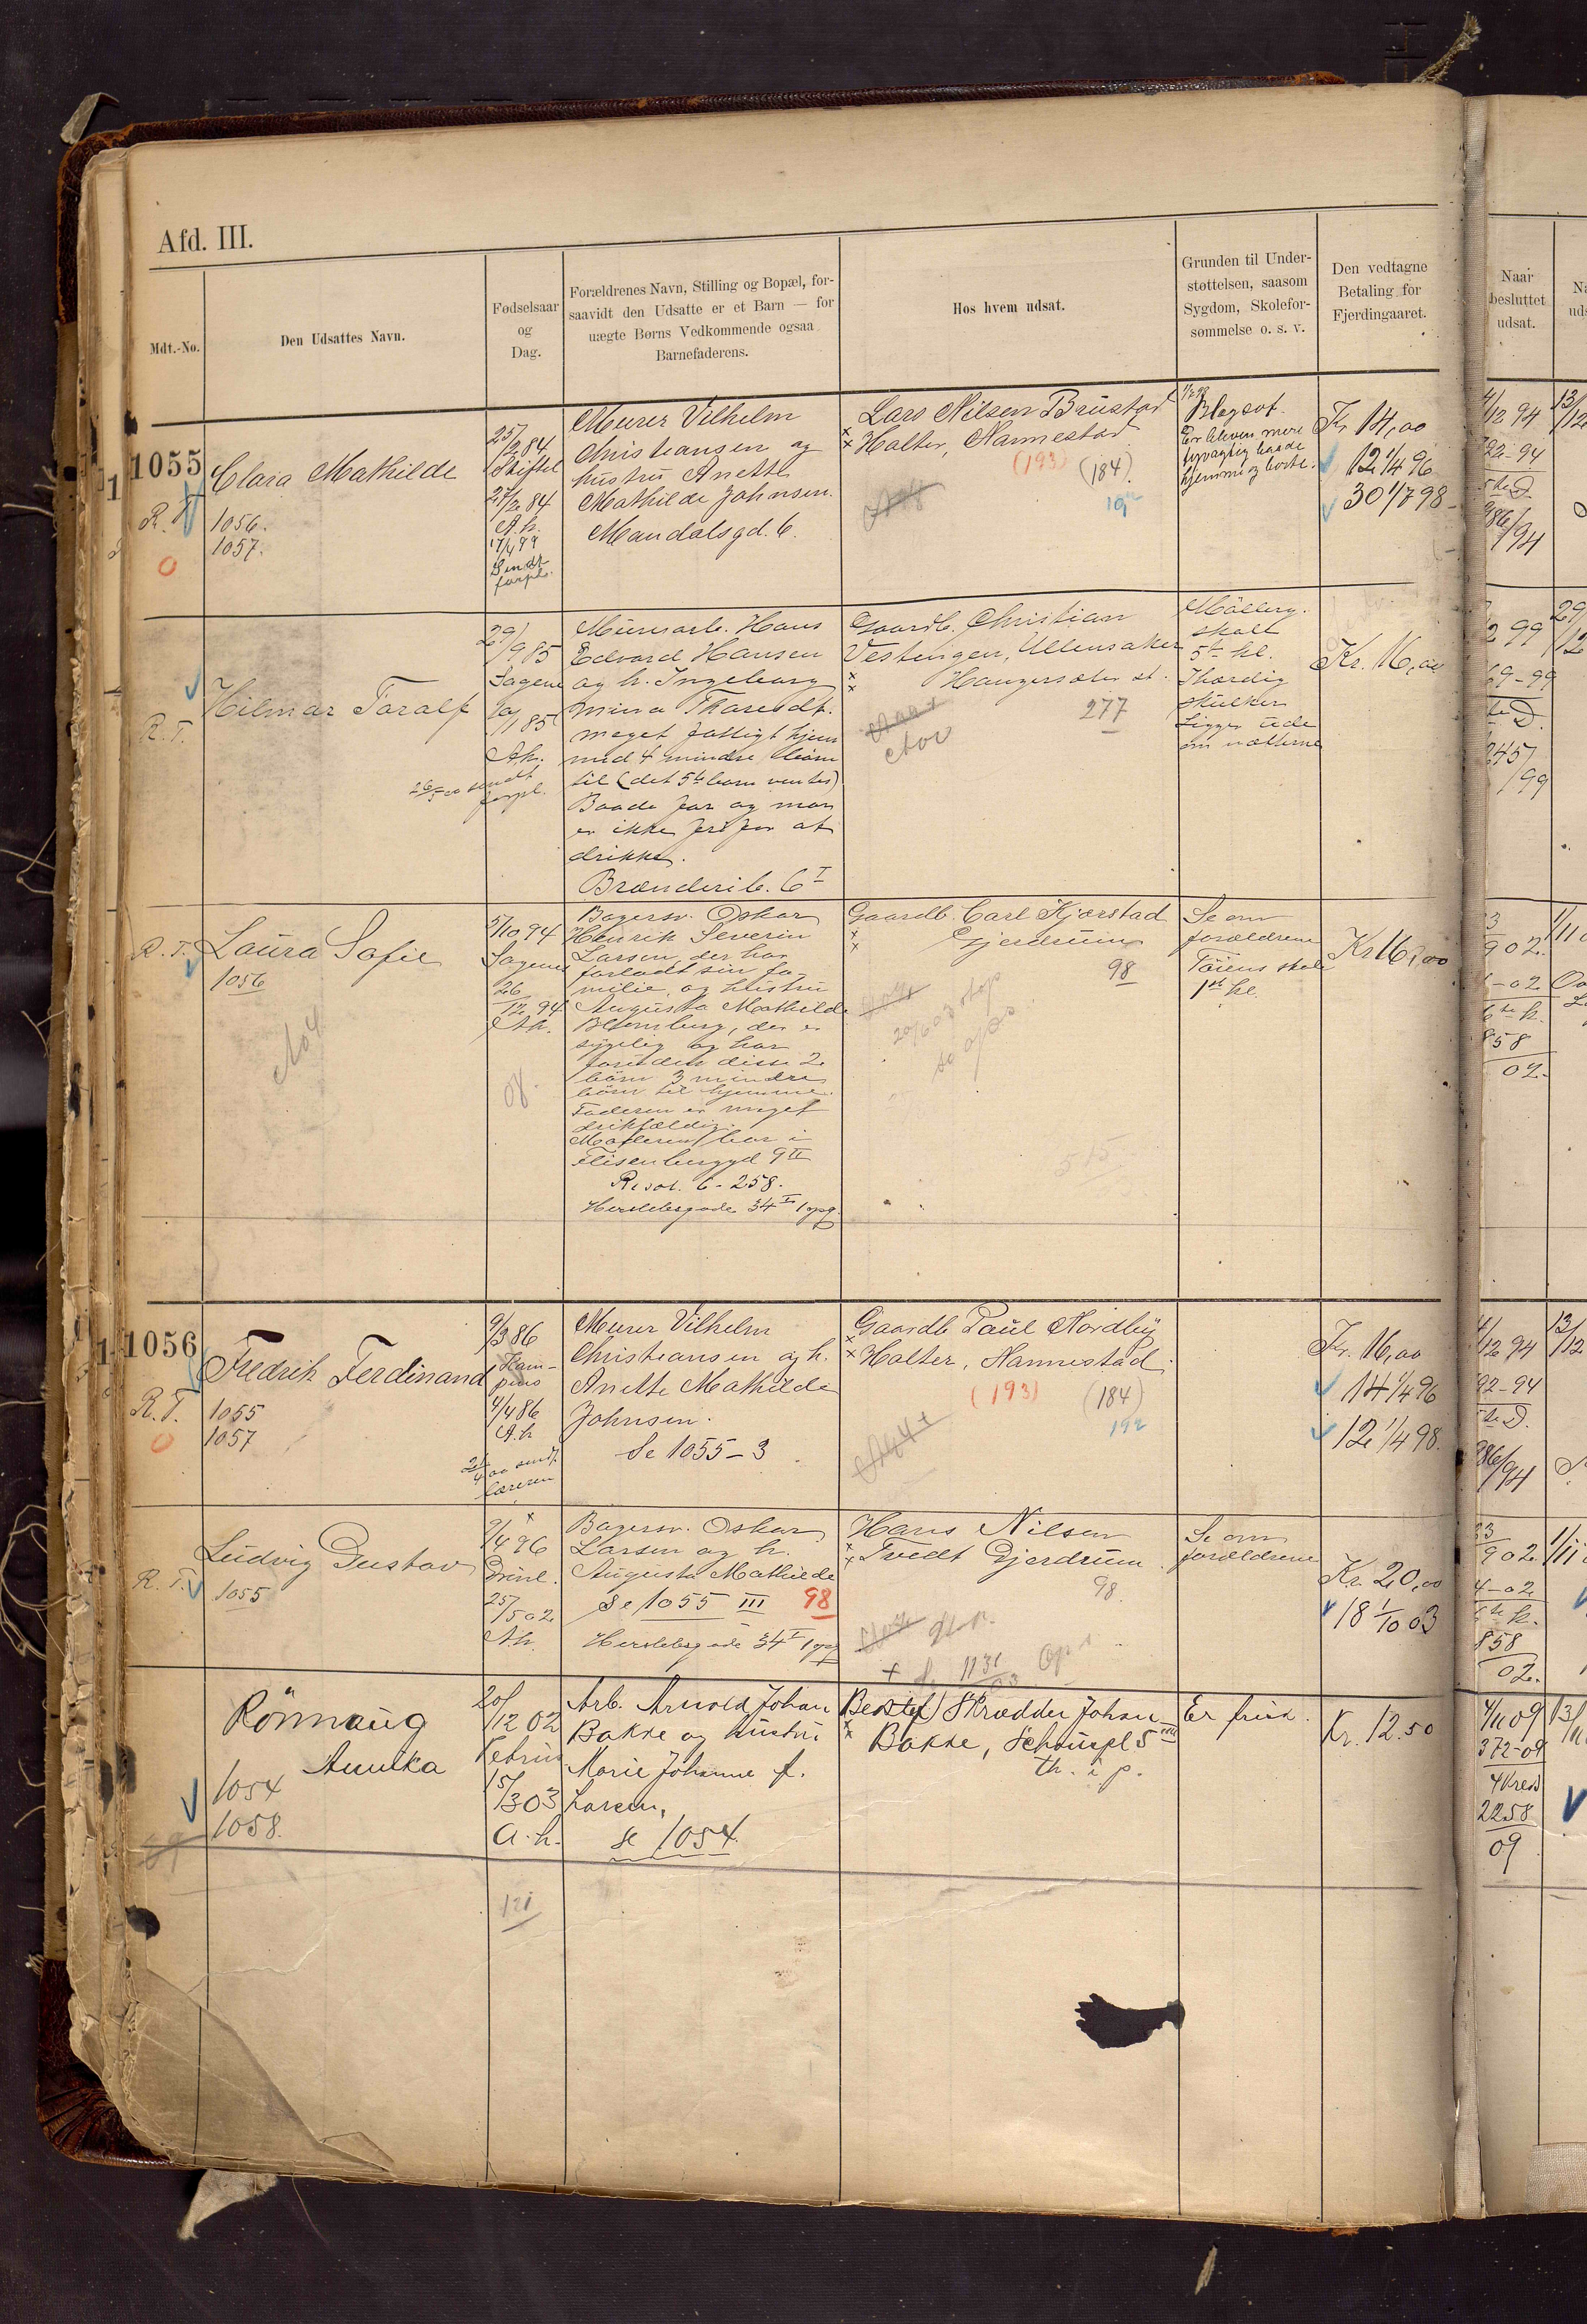 Afd. III.
Mdt.-No.
Den Udsattes Navn.
Fødselsaar
og
Dag.
Forældrenes Navn, Stilling og Bopæl, for-
saavidt den Udsatte er et Barn — for
uægte Børns Vedkommende ogsaa
Barnefaderens.
Hos hvem udsat.
Grunden til Under-
støttelsen, saasom
Sygdom, Skolefor-
sømmelse o. s. v.
Den vedtagne
Betaling for
Fjerdingaaret.
Naar
besluttet
udsat.
1055
R. T.
Clara Mathilde
1056.
1057.
25/2 84
27/12 84
A. h.
17/4 99
Sendt
forpl.
Murer Vilhelm
Christiansen og
hustru Anette
Mathilde Johnsen.
Mandalsgd. 6.
Lars Nilsen Brustad
Holter, Nannestad
(193) (184)
Blegsot.
Er bleven mere
hjemme og borte.
Kr. 14,00
12 1/4 96
30 1/7 98
4/12 94
92-94
5te D.
986/94
R. T.
Hilmar Toralf
29/9 85
Sagene
A. h.
26/5 00 sendt
forpl.
Murerarb. Hans
Edvard Hansen
og h. Ingeborg
Mina Thoresdt.
meget fattigt hjem
med 4 mindre børn
til (det 5te barn ventes)
Baade far og mor
er ikke fri for at
drikke.
Brænderib. 6 I
Gaardb. Christian
Vestengen, Ullensaker
Haugersæter st.
277
Möllerg.
skole
5te kl.
Ihærdig
skulker
Ligger ude
om nætterne
Kr. 16,00
69-99
te D.
245/99
R. T.
Laura Sofie
1056
5/10 94
Sagenes
26/12 94
A. h.
08.
Bagersv. Oskar
Henrik Severin
Larsen, der har
forladt sin fa-
milie, og hustru
Augusta Mathilde
Blomberg, der er
sygelig og har
foruden disse 2
börn 3 mindre
börn til hjemme.
Faderen er meget
drikfældig.
Moderen bor i
Elisenberggd 9 II
Resol. 6-258.
Herslebsgade 34 I 1 opg.
Gaardb. Carl Kjærstad
Gjerdrum
98
20/6 03 stop
515
Se om
forældrene
Töiens skole
1ste kl.
Kr 16,00
3/9 02.
-02
6te k.
858
02.
1056
R. T.
Fredrik Ferdinand
1055
1057
9/3 86
Kam-
pens
4/4 86
A. h
sendt
læreren
Murer Vilhelm
Christiansen og h.
Anette Mathilde
Johnsen.
Se 1055-3
Gaardb Paul Nordby
Holter, Nannestad.
(193) (184)
192
Kr. 16,00
14 1/4 96
12 1/4 98.
4/12 94
92-94
5te D.
986/94
R. T.
Ludvig Gustav
1055
9/4 96
25/5 02
A. h.
Bagersv. Oskar
Larsen og h.
Augusta Mathilde
Se 1055 III 98
Herslebsgade 34 I 1 opg
Hans Nilsen
Tvedt Gjerdrum.
98.
Se om
forældrene
Kr. 20,00
18 1/10 03
23/9 02
4-02
te k.
858
02.
Rönnaug
Annika
1054
1058.
20/12 02
Petrus
15/3 03
A. h.
121
Arb. Arnold Johan
Bakke og hustru
Marie Johanne f.
Larsen.
se 1054
Bestef. Skrædder Johan
Bakke, Schouspl 5
th. i p.
Er frisk.
Kr. 12.50
4/11 09
372-09
4 Kreds
2258
09